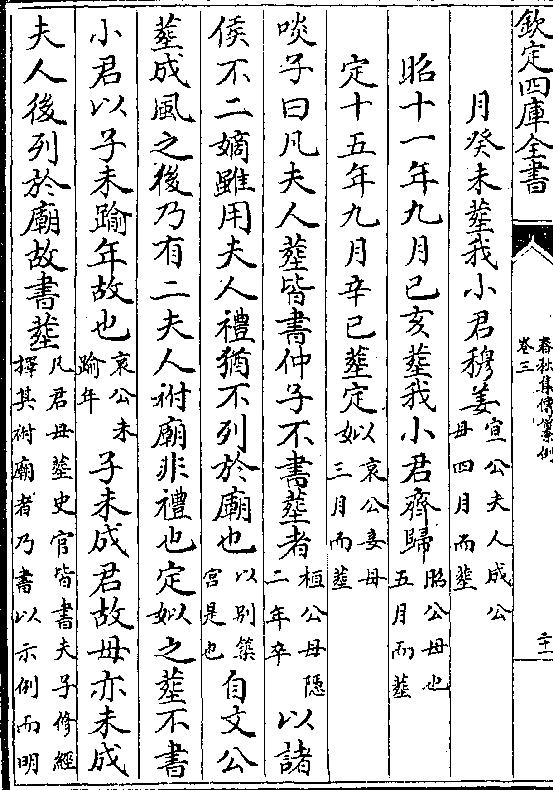 欽定四庫全書
春秋集傳纂例
卷三
二十一
月癸未葬我小君穆姜宣公夫人成公
母四月而葬
昭十一年九月己亥葬我小君齊歸昭公母也
五月而葬
定十五年九月辛巳葬定姒哀公妾母
三月而葬
啖子曰凡夫人葬皆書仲子不書葬者桓公母隱
二年卒以諸
侯不二嫡雖用夫人禮猶不列於廟也以别築
宫是也自文公
葬成風之後乃有二夫人祔廟非禮也定姒之葬不書
小君以子未踰年故也哀公未
踰年子未成君故母亦未成
夫人後列於廟故書葬凡君母葬史官皆書夫子修經
擇其祔廟者乃書以示例而明